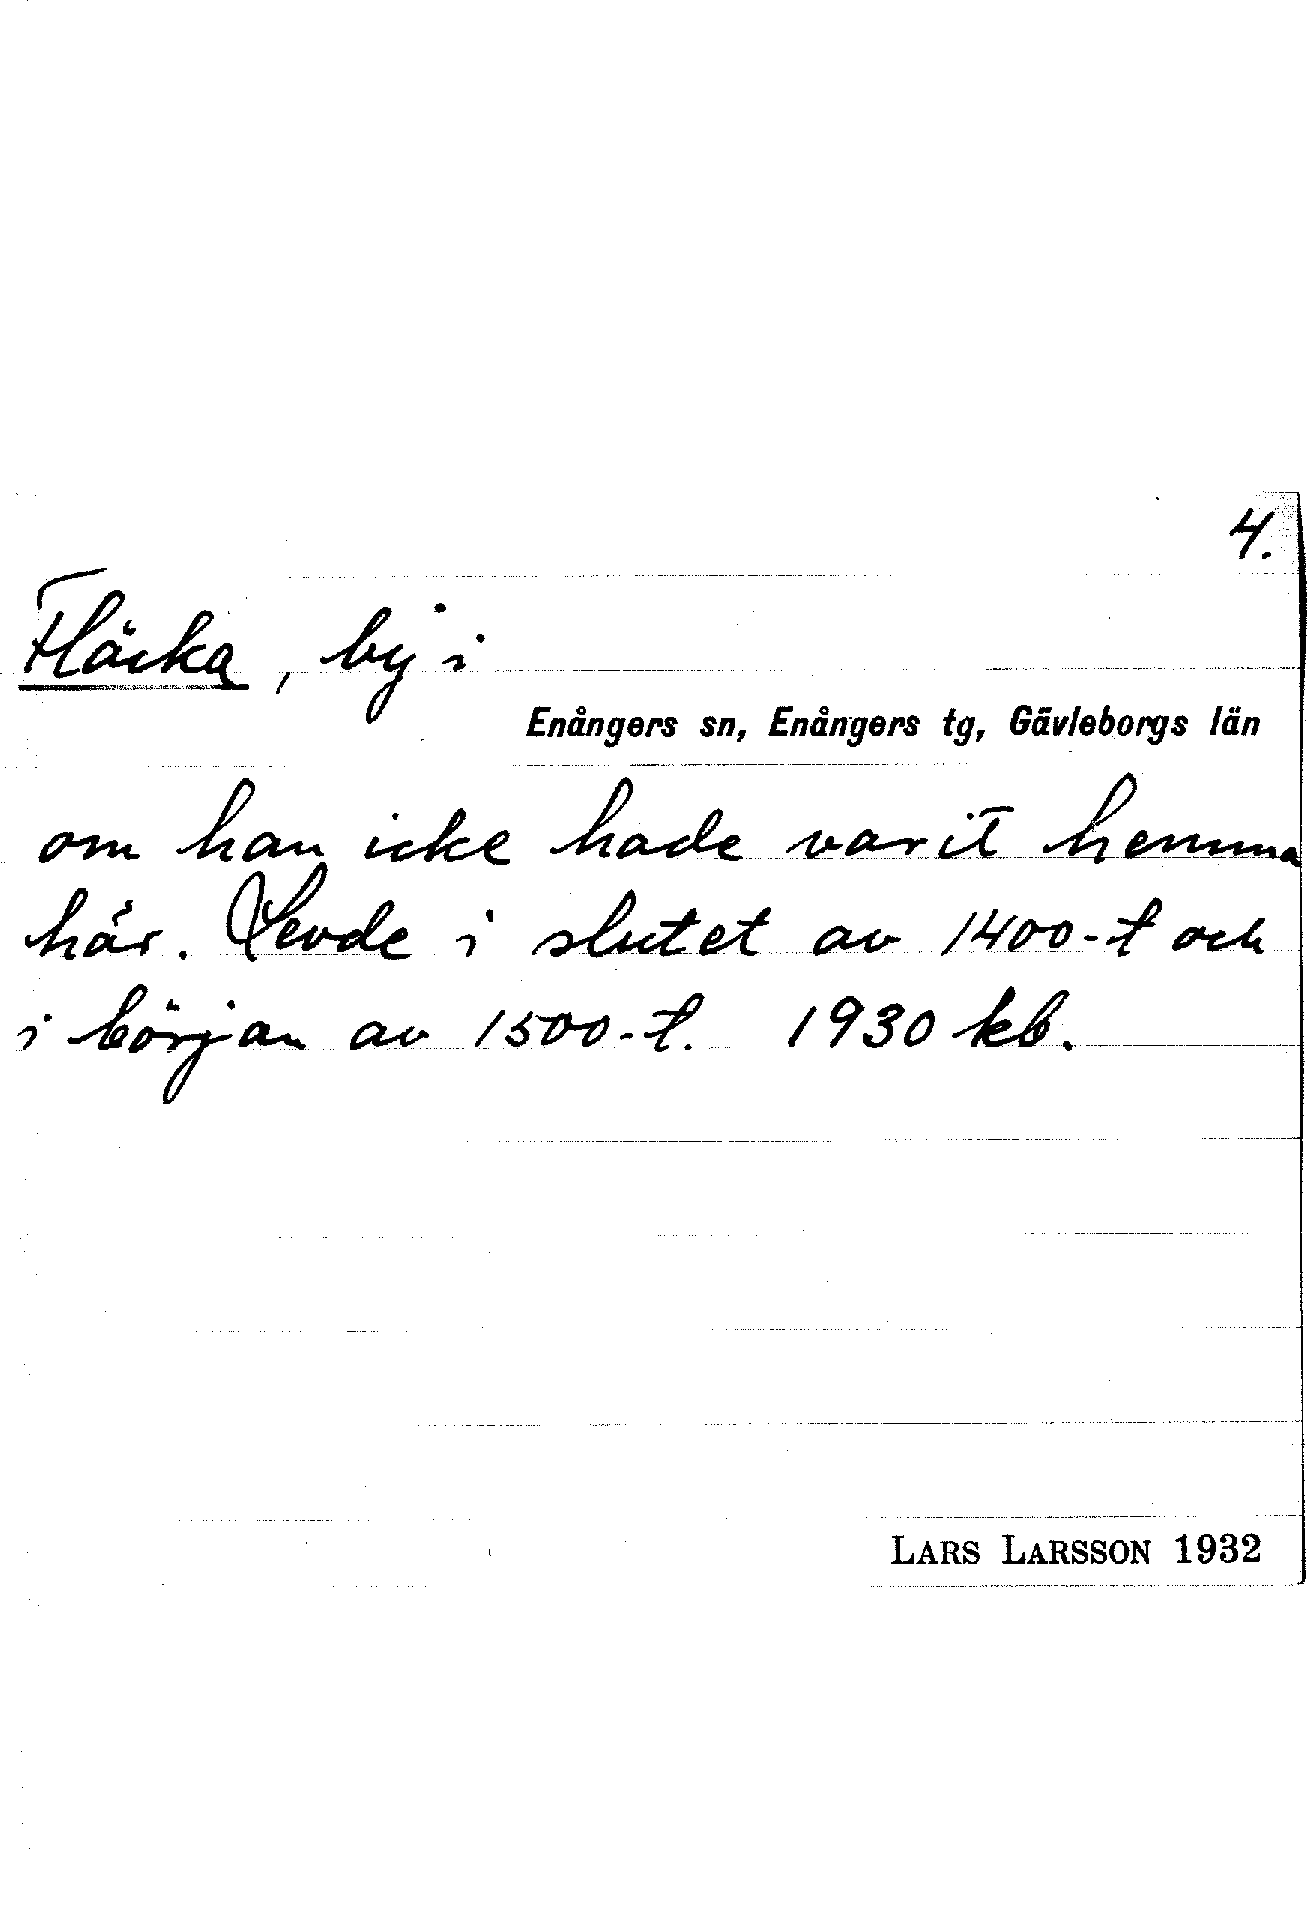 4.
Fläcka, by i
Enångers sn, Enångers tg, Gävleborgs län
om han icke hade varit hemma
här. Levde i slutet av 1400-t och
i början av 1500-t. 1930 kb.
LARS LARSSON 1932